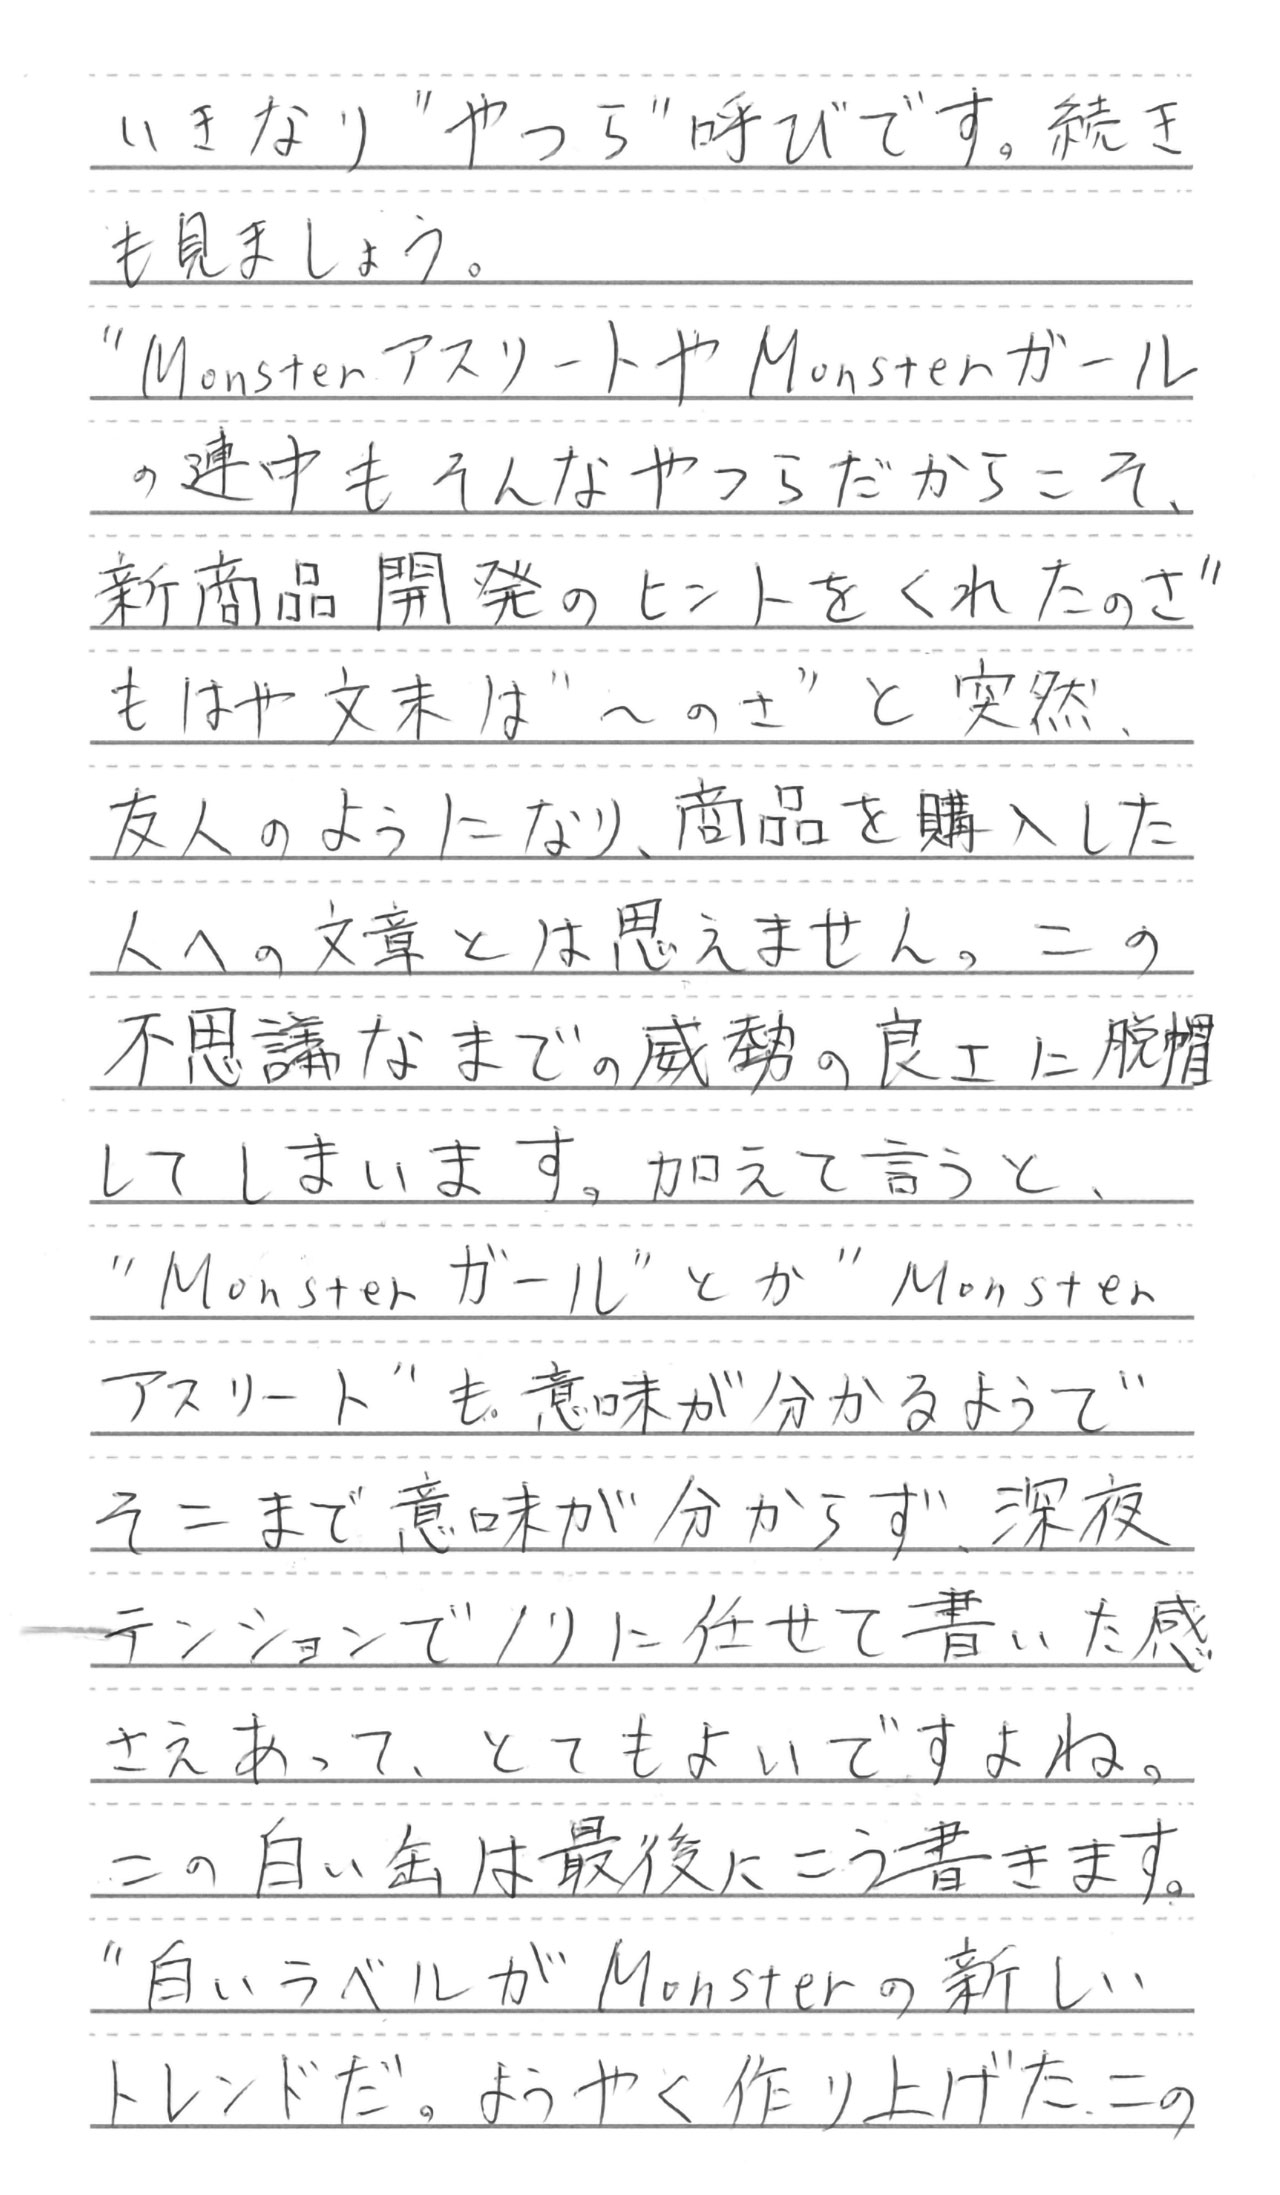 いきなり"やつら"呼びです。続き
も見ましょう。
"MonsterアスリートやMonsterガール
の連中もそんなやつらだからこそ、
新商品開発のヒントをくれたのさ"
もはや文末は"〜のさ"と突然、
友人のようになり、商品を購入した
人への文章とは思えません。この
不思議なまでの威勢の良さに脱帽
してしまいます。加えて言うと、
"Monsterガール"とか"Monster
アスリート"も意味が分かるようで
そこまで意味が分からず、深夜
テンションでノリに任せて書いた感
さえあって、とてもよいですよね。
この白い缶は最後にこう書きます。
"白いラベルがMonsterの新しい
トレンドだ。ようやく作り上げた、この